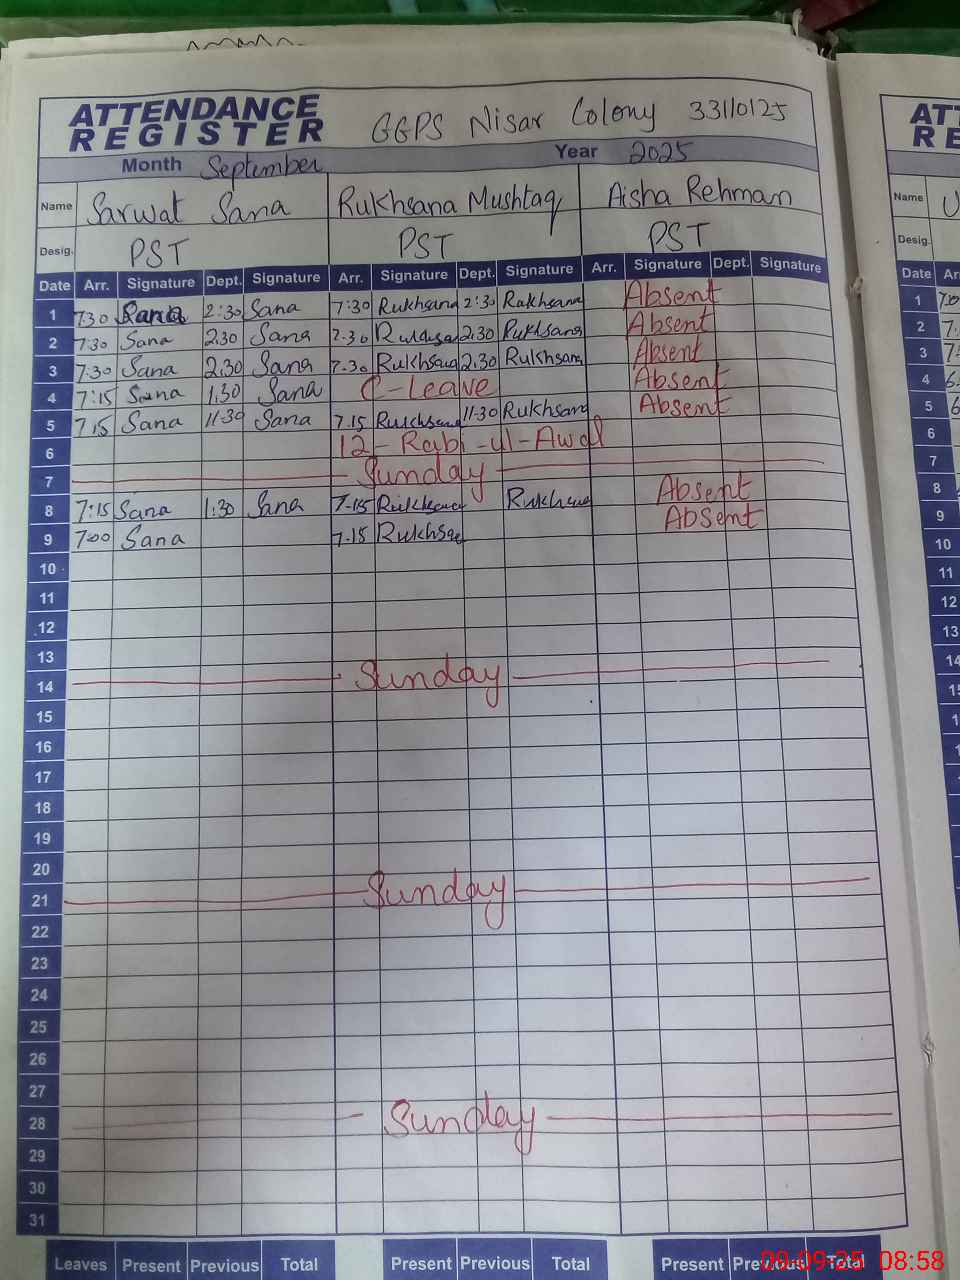 ATTENDANCE REGISTER GGPS Nisar Colony 33110125
Month September Year 2025
Name Sarwat Sana Rukhsana Mushtaq Aisha Rehman
Desig. PST PST PST
Date Arr. Signature Dept. Signature Arr. Signature Dept. Signature Arr. Signature Dept. Signature
1 7.30 Sana 2:30 Sana 7:30 Rukhsana 2:30 Rukhsana Absent
2 7:30 Sana 2.30 Sana 7.30 Rukhsana 2.30 Rukhsana Absent
3 7.30 Sana 2.30 Sana 7.30 Rukhsana 2.30 Rukhsana Absent
4 7:15 Sana 1.30 Sana C-Leave Absent
5 7.15 Sana 11-30 Sana 7.15 Rukhsana 11-30 Rukhsana Absent
6 12-Rabi-ul-Awal
7 Sunday
8 7:15 Sana 1:30 Sana 7-15 Rukhsana Rukhsana Absent
9 7:00 Sana 7.15 Rukhsana Absent
10
11
12
13
14 Sunday
15
16
17
18
19
20
21 Sunday
22
23
24
25
26
27
28 Sunday
29
30
31
Leaves Present Previous Total Present Previous Total Present Previous Total
09-09-25 08:58
Name
Desig.
Date
1
2
3
4
5
6
7
8
9
10
11
12
13
14